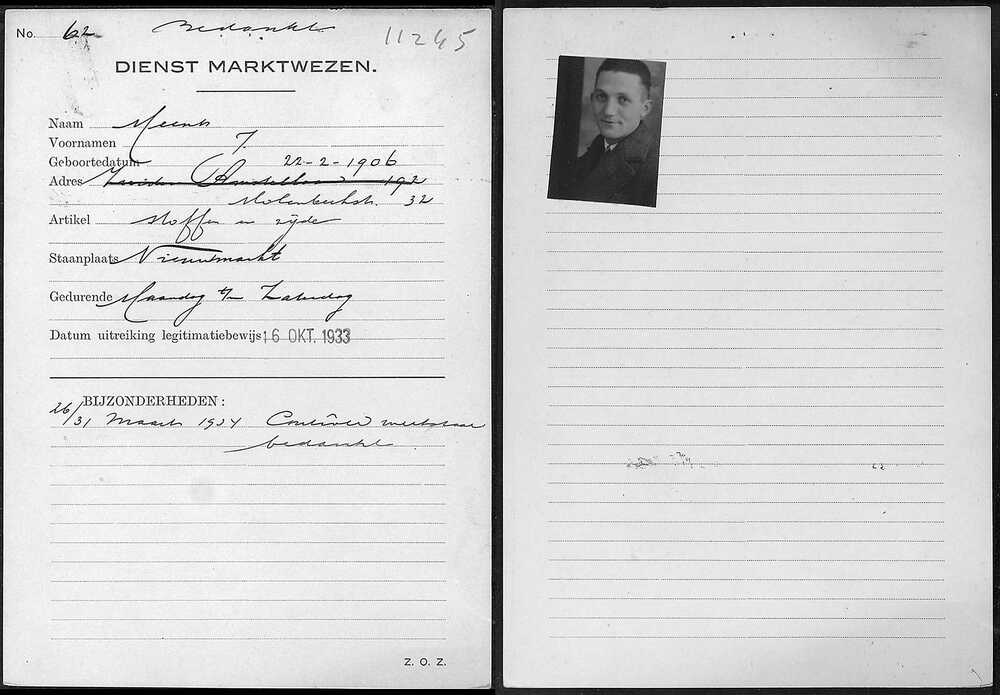 No. 62 Bedankt 11245
DIENST MARKTWEZEN.
Naam
Voornamen J.
Geboortedatum 22-2-1906
Adres 192
Molenbeekstr. 32
Artikel stoffen en zijde
Staanplaats Nieuwmarkt
Gedurende Maandag t/m Zaterdag
Datum uitreiking legitimatiebewijs: 16 OKT. 1933
BIJZONDERHEDEN:
26/31 Maart 1934
bedankt
Z. O. Z.